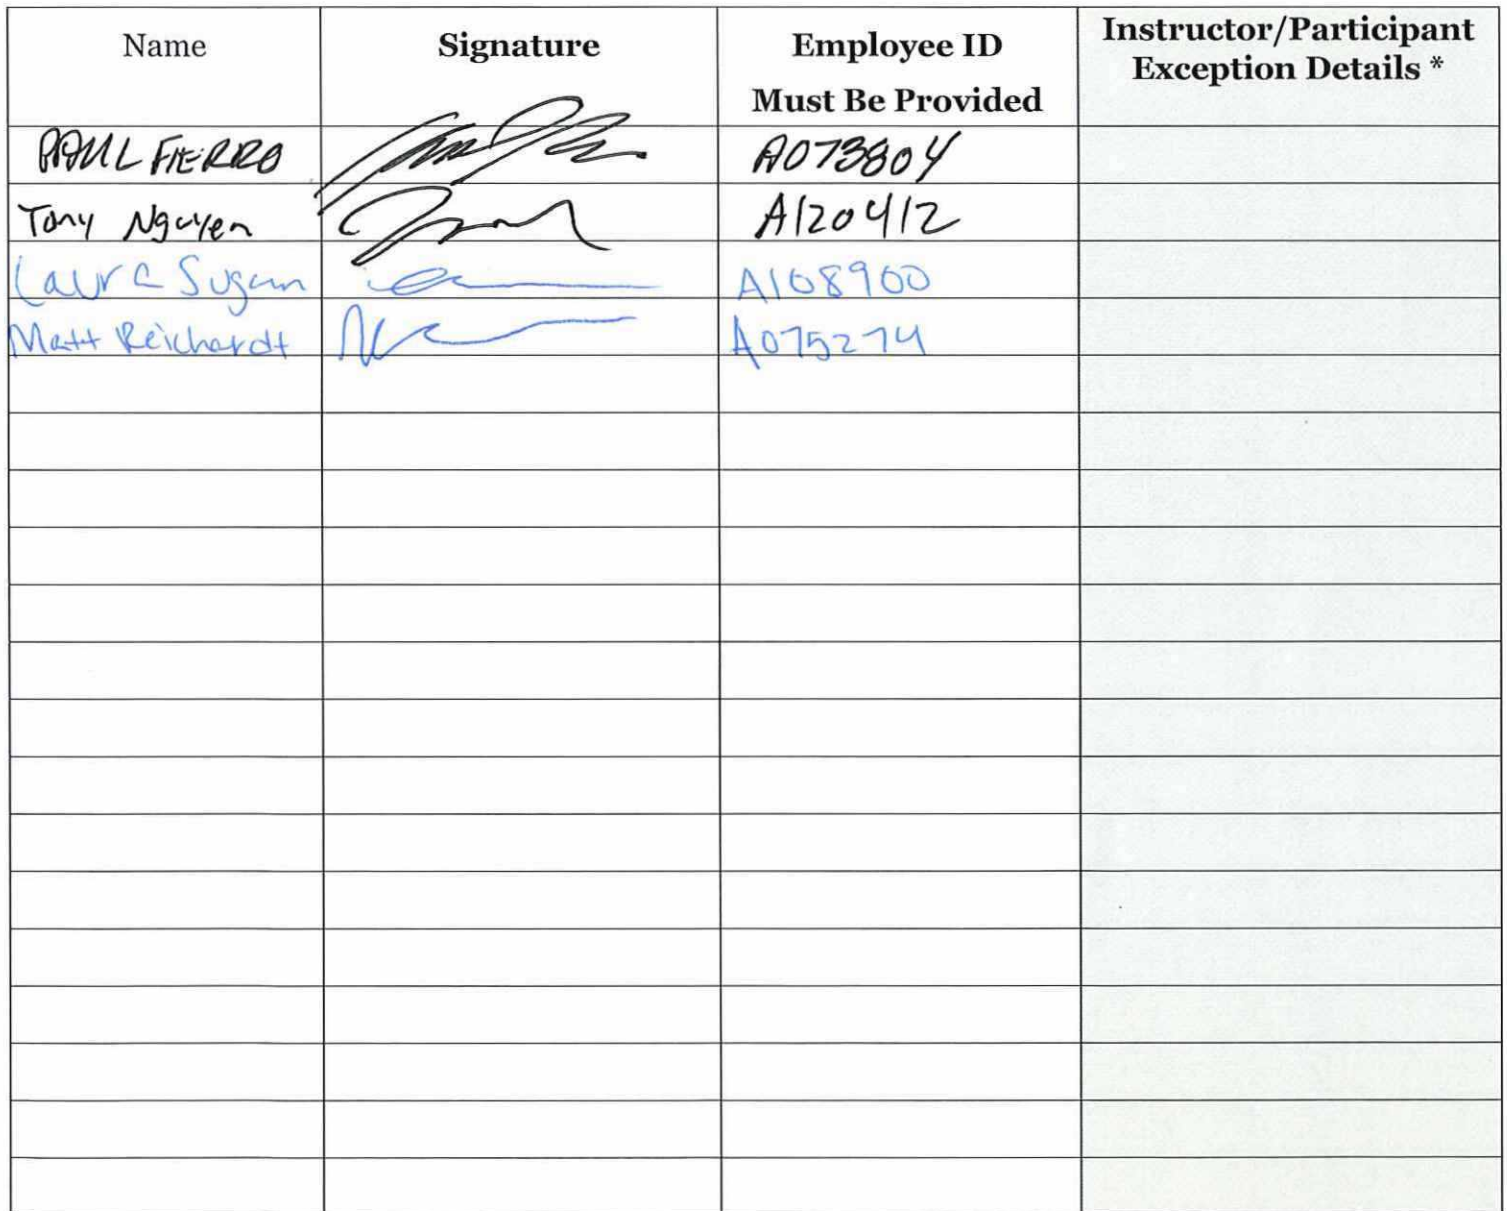 Name Signature Employee ID Instructor/Participant
Must Be Provided Exception Details *
PAUL FIERRO A073804
Tony Nguyen A120412
Laura Sugam A108900
Matt Reichardt A075274